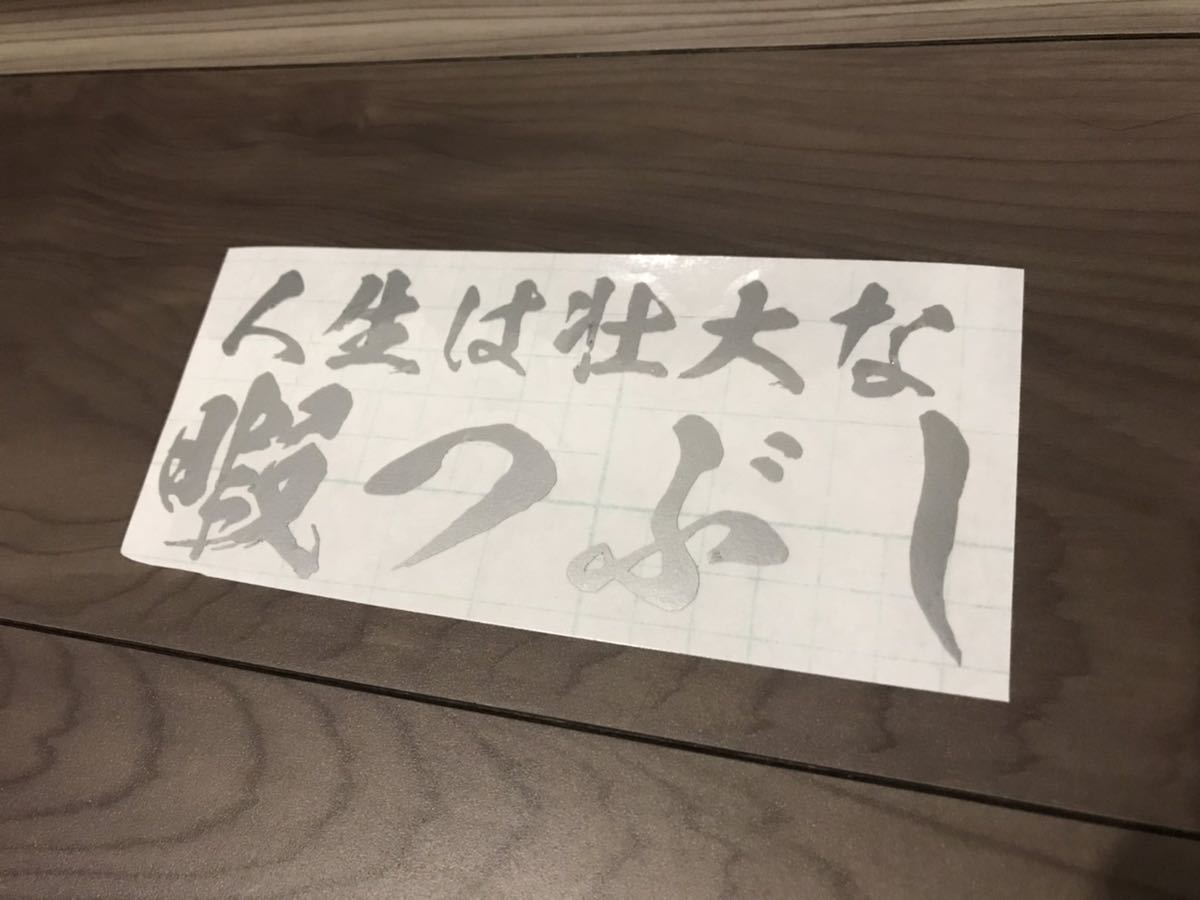 人生は壮大な
暇つぶし